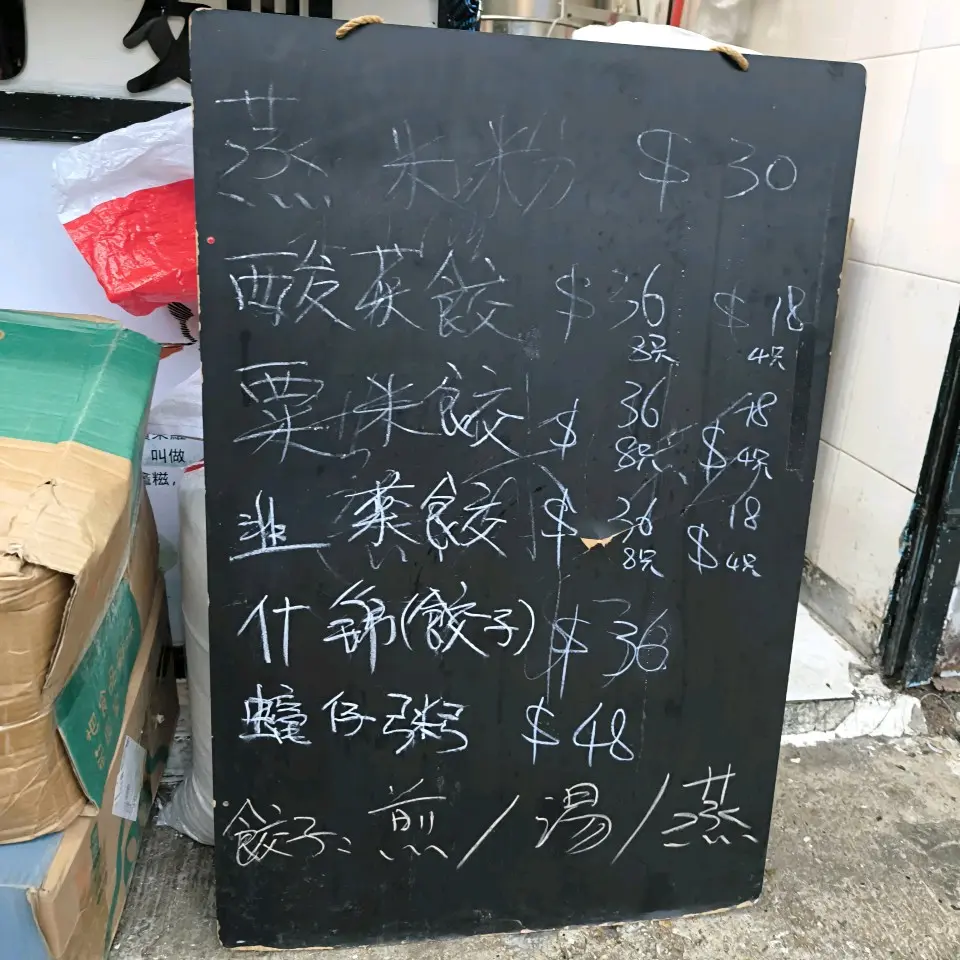 蒸米粉 $30
酸菜餃 $36 $18
8只 4只
粟米餃 $36 $18
8只 4只
韭菜餃 $36 $18
8只 4只
什錦(餃子) $36
蠔仔粥 $48
餃子: 煎/湯/蒸
叫做